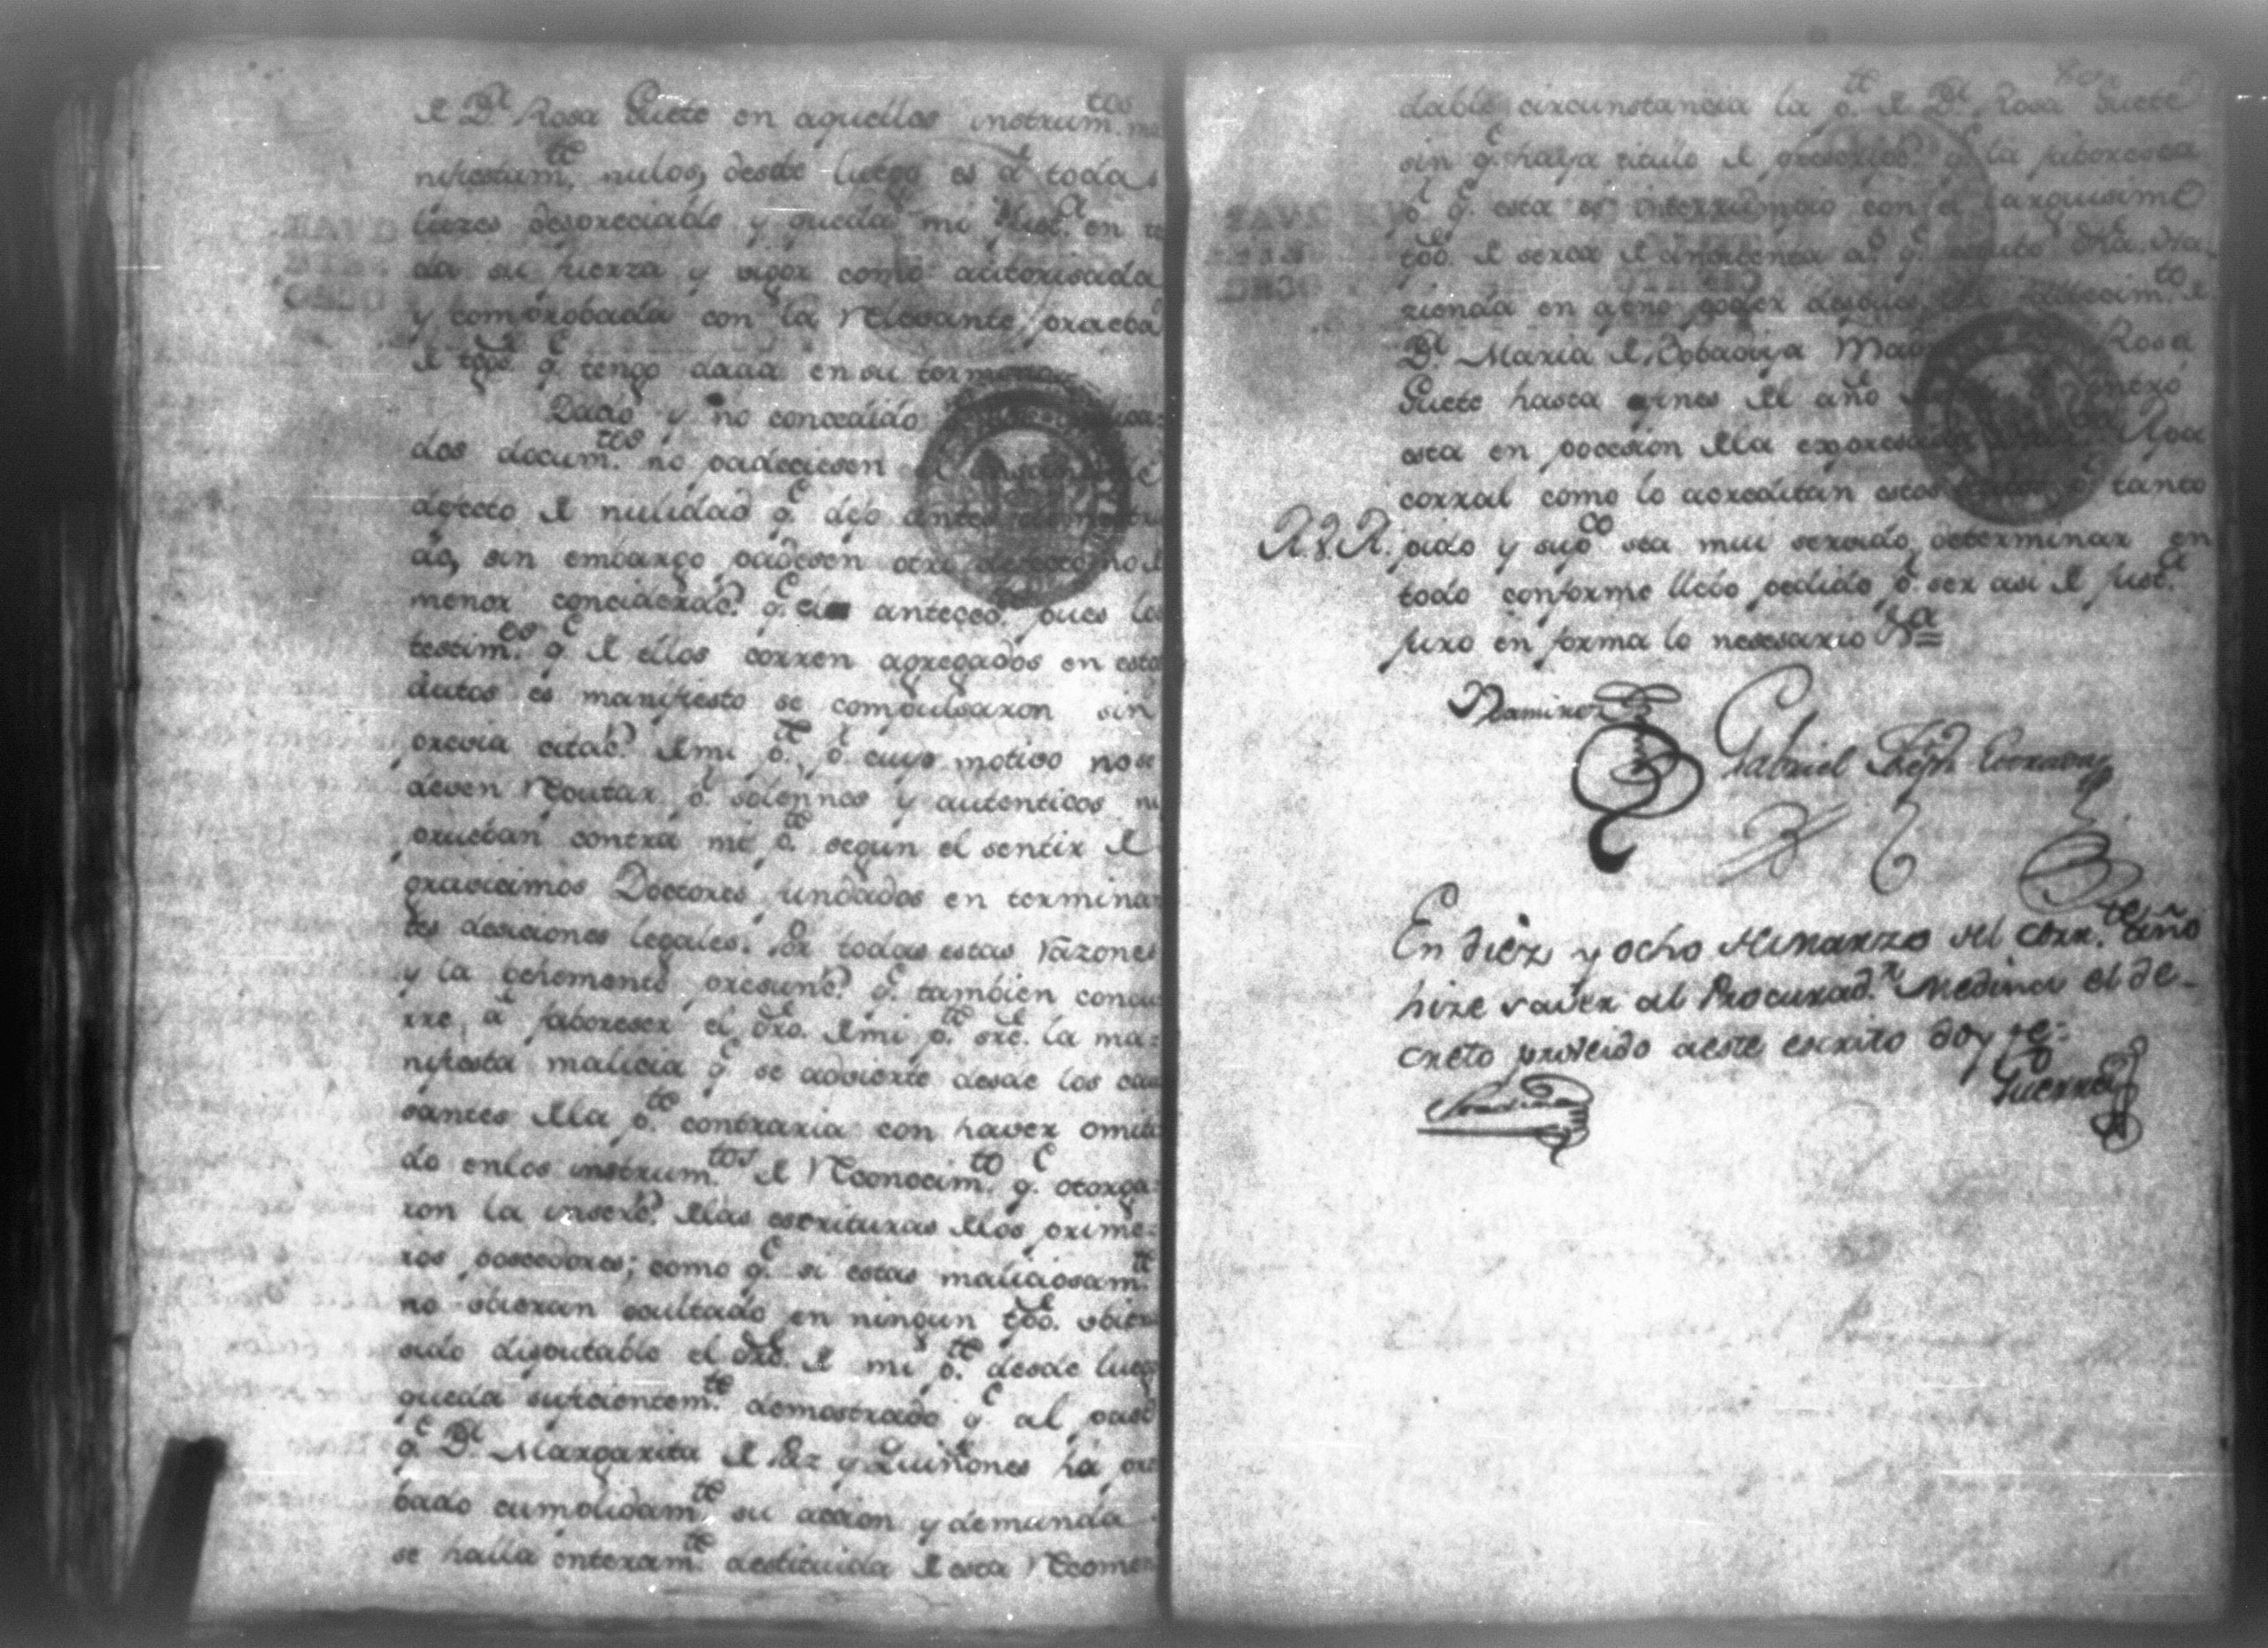 de Dª Rosa Guete en aquellos instrumtos ma
nifiestamte nulos, desde luego es á todas
luezes despreciable y queda mi Justª en to
da su fuerza y vigor como autorisada
y comprobada con la relevante prueba
de tgos q.e tengo dada en su tormino
Dado y no concedido
dos documtos no padeciesen
defecto de nulidad q.e dejo antes demostra
do, sin embargo padesen otro defecto no de
menor conciderasn q.e el antecedte pues los
testimos q.e de ellos corren agregados en estos
Autos es manifiesto se compulsaron sin
previa citacn de mi pte pr cuyo motivo no se
deven reputar pr solennes y autenticos ni
prueban contra mi pte segun el sentir de
gravicimos Doctores fundados en terminan
tes desiciones legales. Por todas estas razones
y la vehemente presuncn q.e tambien concu
rre, á faboreser el dro. de mi pte sre. la ma-
nifiesta malicia q.e se advierte desde los cau
santes de la pte contraria con haver omiti
do en los instrumtos de reconocimto q.e otorga
ron la insercn de las escrituras de los prime-
ros poseedores; como q.e si estas maliciosamte
no obieran ocultado en ningun tpo. obiera
sido disputable el dro. de mi pte desde luego
queda suficientemte demostrado q.e al paso
q.e Dª Margarita de Paz y Quiñones há pro
bado cumplidamte su accion y demanda
se halla enteramte destituida de esta recomen
dable circunstancia la pte de Dª Rosa Guete
sin q.e haya titulo de prescripcn q.e la faboresca
pr q.e esta se interrumpio con el larguisimo
tpo. de seror de cinquenta as q.e estubo dha. ha
zienda en ageno poder despues del fallecimto de
Dª Maria de Bobadiya Madre Rosa
Guete hasta fines del año
esta en pocesion de la expresada
corral como lo acreditan estos tanto
A.V.A. pido y supco sea mui servido determinar en
todo conforme llebo pedido pr ser asi de Justª
juro en forma lo nesesario Vª
Ramirez
Gabriel Joseph
En diez y ocho de Marzo del corrte año
hize saver al Procuradr Medina el de-
creto proveido a este escrito doy fe:
Guerrero